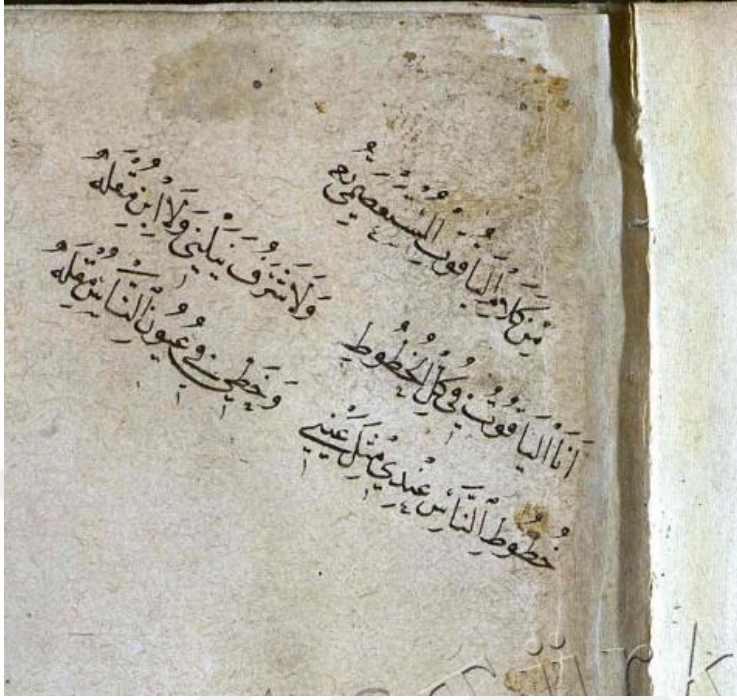 مِنْ كَلَامِ الْيَاقُوتِ الْمُسْتَعْصِمِي
اَنَا الْيَاقُوتُ فِي كُلِّ الْخُطُوطِ وَلَا شَرَف وَلَا ابْنُ مُقْلَهُ
خُطُوطُ النَّاسِ عِنْدِي مِثْلُ عَيْنِي وَخَطِّي فِي عُيُونِ النَّاسِ مُقْلَهُ
Türk